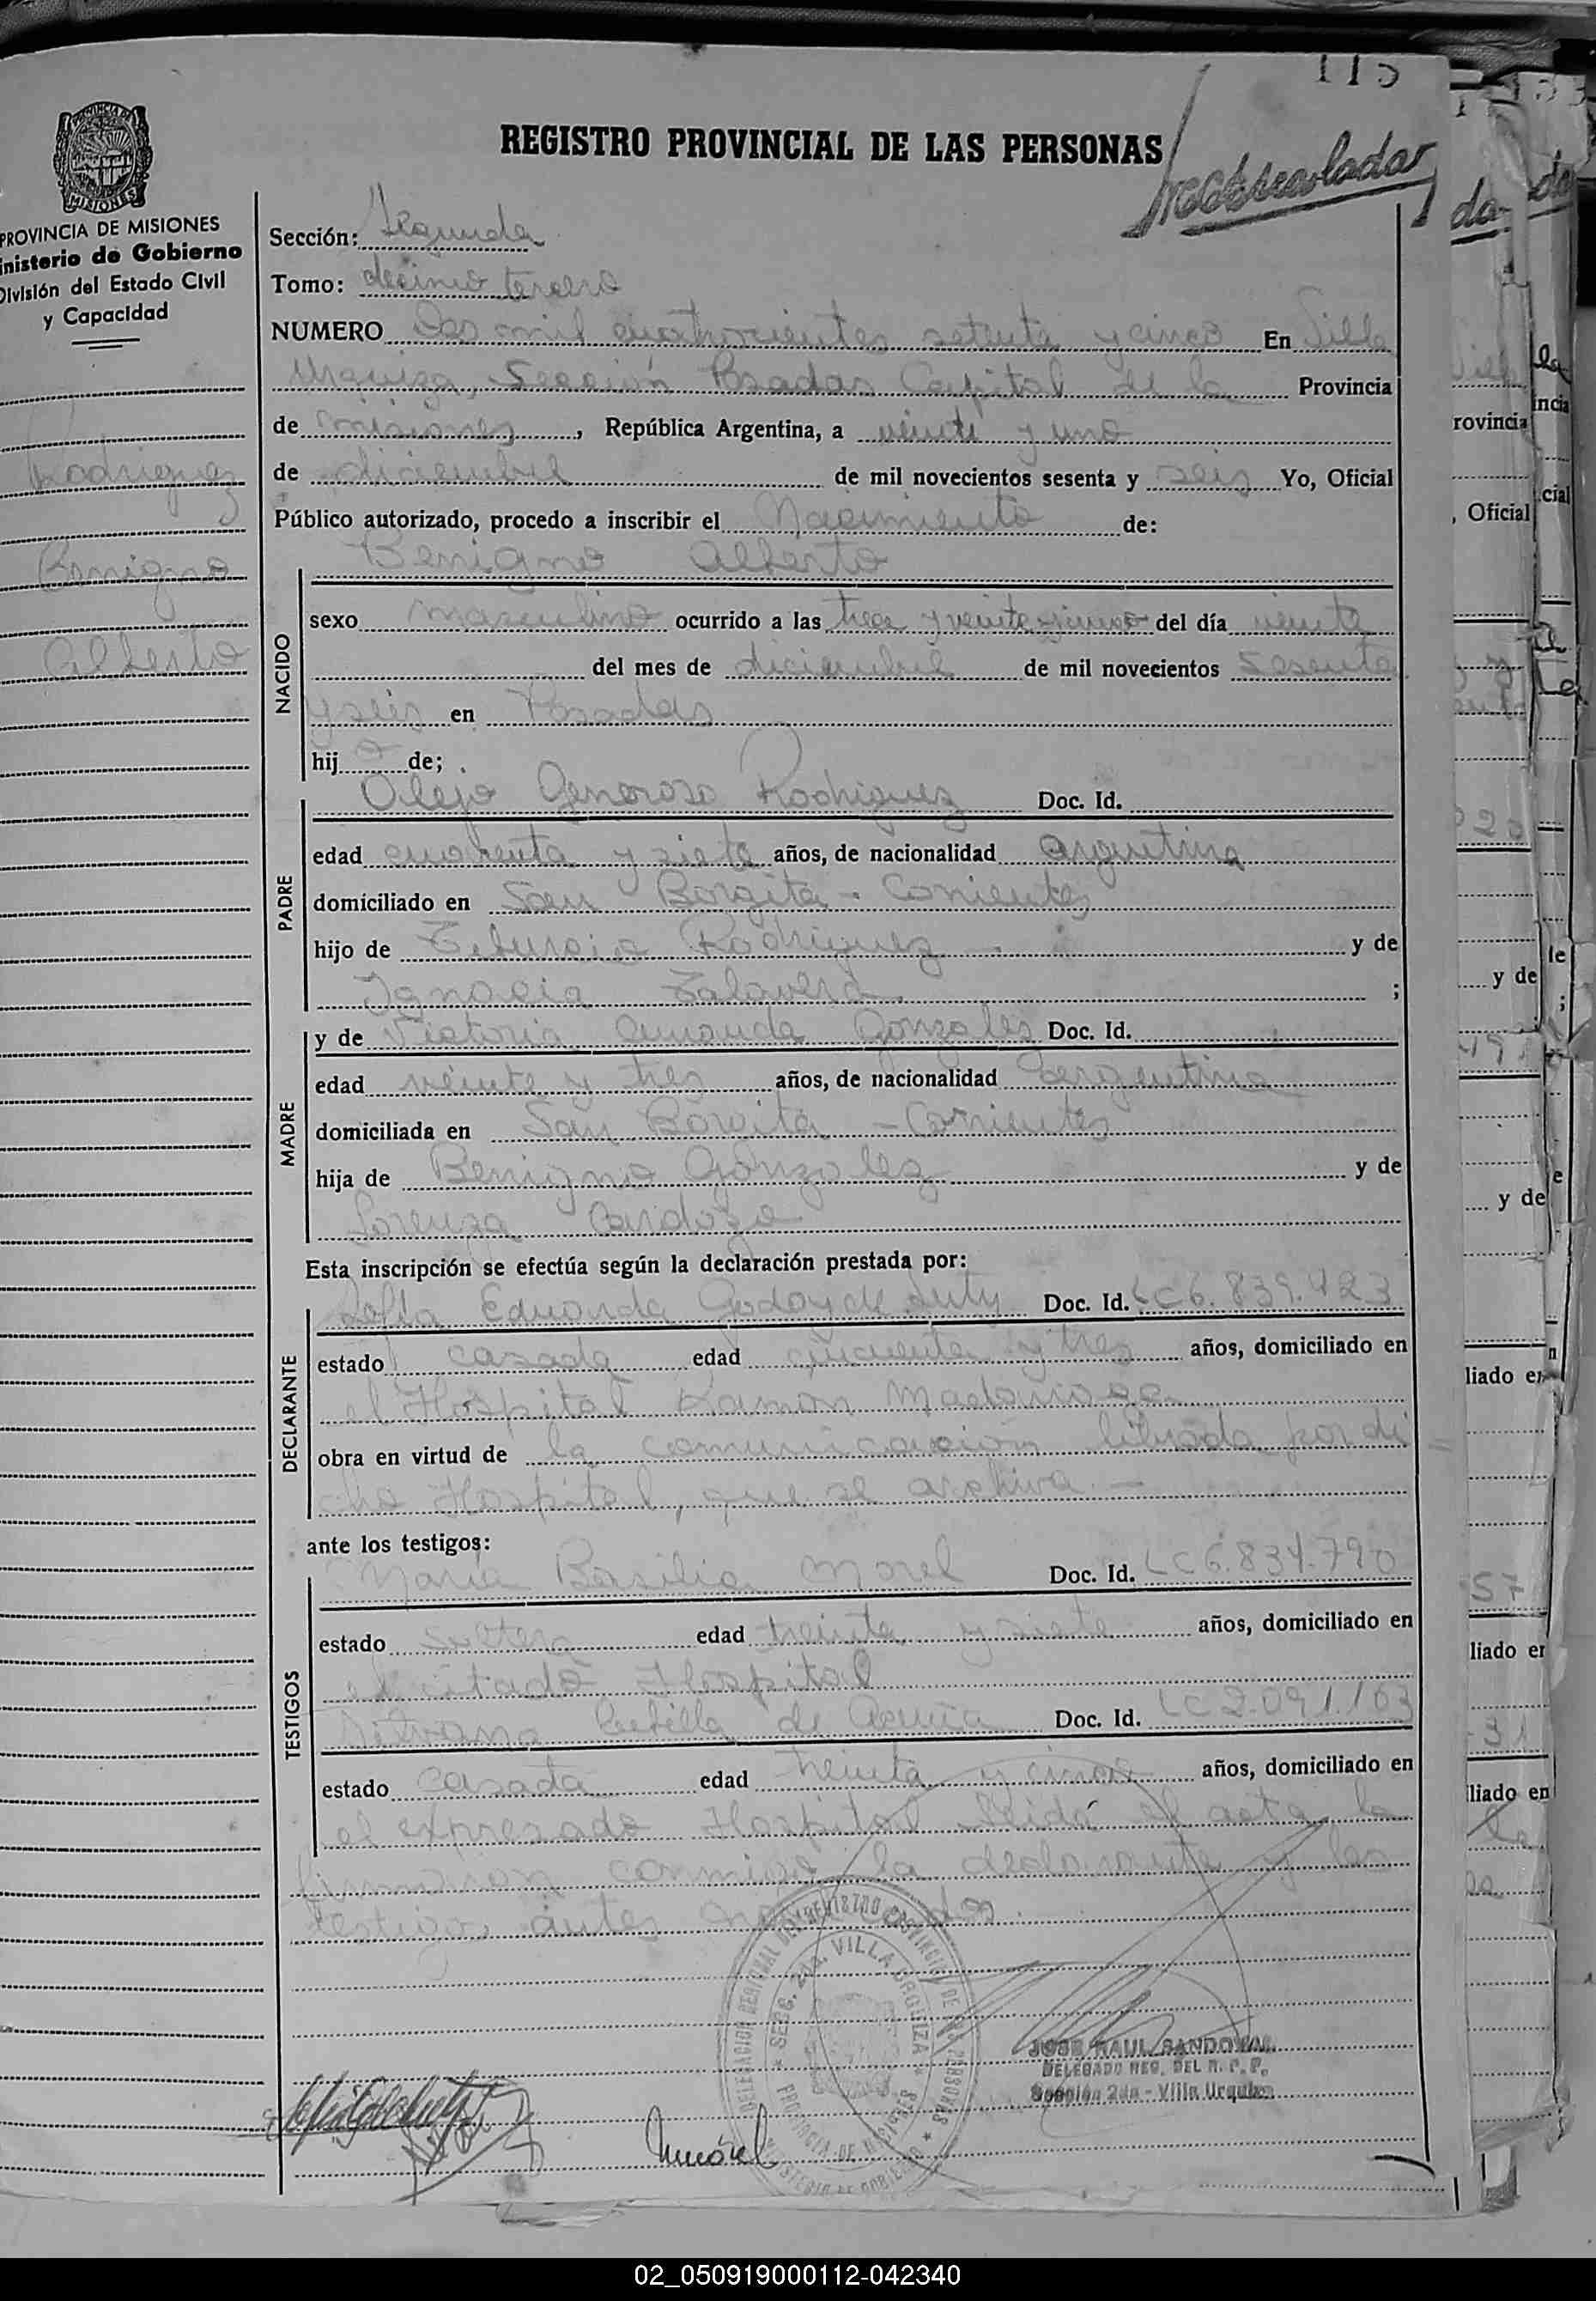 115
REGISTRO PROVINCIAL DE LAS PERSONAS
PROVINCIA DE MISIONES
inisterio de Gobierno
División del Estado Civil
y Capacidad
Rodriguez
Benigno
Alberto
Sección: Segunda
Tomo: decimo tercero
NUMERO Dos mil cuatrocientos setenta y cinco En Villa
Urquiza, Sección Posadas Capital de la Provincia
de Misiones, República Argentina, a veinte y uno
de diciembre de mil novecientos sesenta y seis Yo, Oficial
Público autorizado, procedo a inscribir el Nacimiento de:
Benigno Alberto
NACIDO
sexo masculino ocurrido a las trece y veinte y cinco del día veinte
del mes de diciembre de mil novecientos sesenta
y seis en Posadas
hij o de;
PADRE
Alejo Generoso Rodriguez Doc. Id.
edad cuarenta y siete años, de nacionalidad argentina
domiciliado en San Borgita - Corrientes
hijo de Rodriguez y de
Ignacia Zalavera ;
MADRE
y de Victoria Amanda Gonzales Doc. Id.
edad veinte y tres años, de nacionalidad argentina
domiciliada en San Borgita - Corrientes
hija de Benigno Gonzalez y de
Lorenza Cardozo
Esta inscripción se efectúa según la declaración prestada por:
DECLARANTE
Sofia Eduarda Godoy de Doc. Id. LC 6.839.423
estado casada edad cincuenta y tres años, domiciliado en
el Hospital Ramon Madariaga
obra en virtud de la comunicación librada por di
cho Hospital, que se archiva. -
ante los testigos:
TESTIGOS
Maria Basilia Morel Doc. Id. LC 6.834.790
estado soltera edad treinta y siete años, domiciliado en
el citado Hospital
Silvana de Acuña Doc. Id. LC 2.091.103
estado casada edad treinta y cinco años, domiciliado en
el expresado Hospital leida el acta la
firmaron conmigo la declarante y los
testigos antes
DELEGACION REGIONAL DEL REGISTRO PROVINCIAL DE LAS PERSONAS
SECC. 2da. VILLA URQUIZA
PROVINCIA DE MISIONES
MINISTERIO DE GOBIERNO
JOSE RAUL SANDOVAL
DELEGADO REG. DEL R. P. P.
Sección 2da - Villa Urquiza
02_050919000112-042340